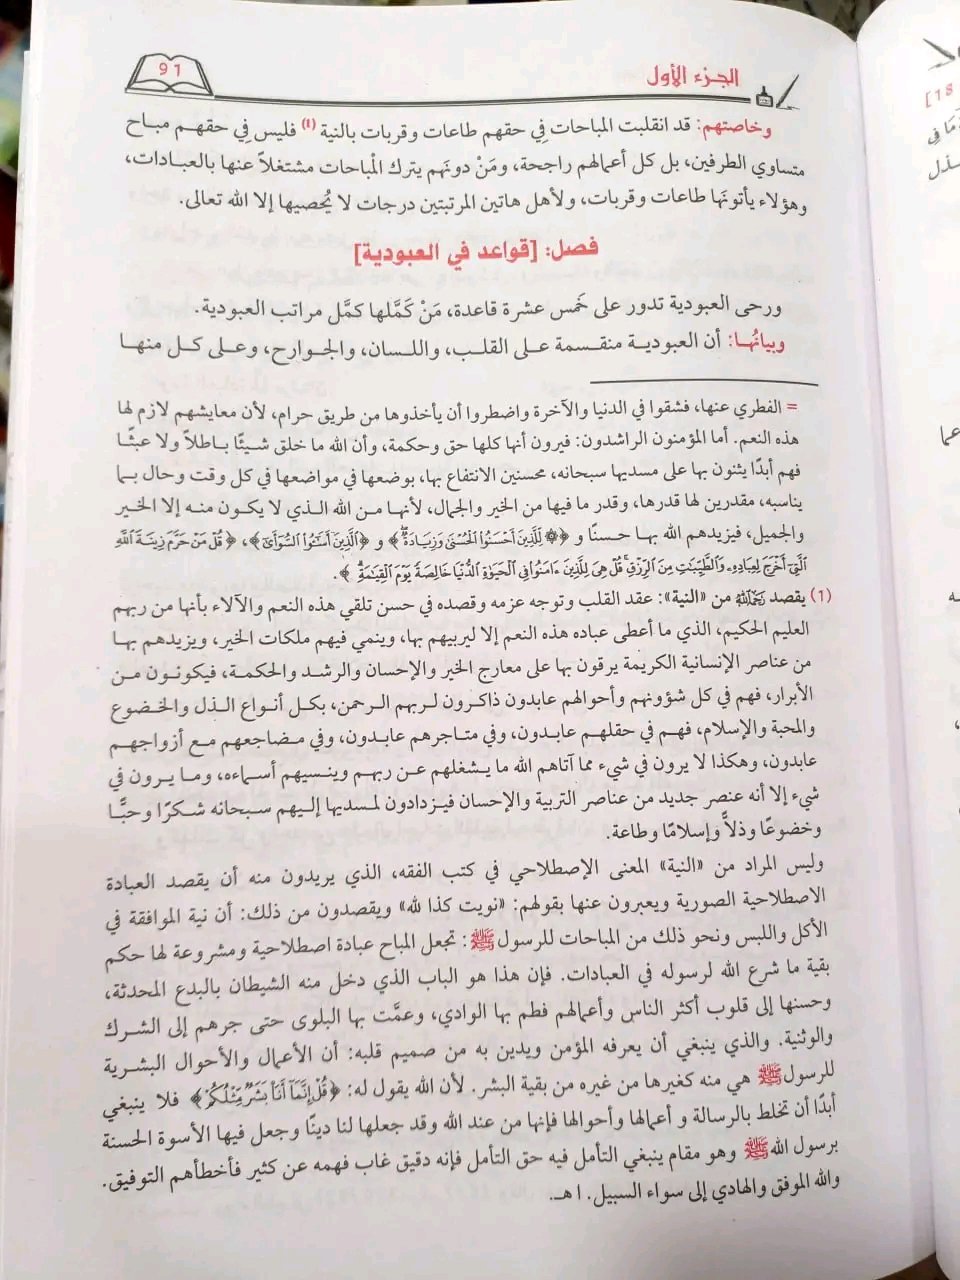 91
الجزء الأول
وخاصتهم: قد انقلبت المباحات في حقهم طاعات وقربات بالنية (1) فليس في حقهم مباح
متساوي الطرفين، بل كل أعمالهم راجحة، ومَنْ دونَهم يترك الْمباحات مشتغلاً عنها بالعبادات،
وهؤلاء يأتونَها طاعات وقربات، ولأهل هاتين المرتبتين درجات لا يُحصيها إلا الله تعالى.
فصل: [قواعد في العبودية]
ورحى العبودية تدور على خَمس عشرة قاعدة، مَنْ كَمَّلها كمَّل مراتب العبودية.
وبيانُها: أن العبودية منقسمة على القلب، واللسان، والجوارح، وعلى كل منها
= الفطري عنها، فشقوا في الدنيا والآخرة واضطروا أن يأخذوها من طريق حرام، لأن معايشهم لازم لها
هذه النعم. أما المؤمنون الراشدون: فيرون أنها كلها حق وحكمة، وأن الله ما خلق شيئًا باطلاً ولا عبثًا
فهم أبدًا يثنون بها على مسديها سبحانه، محسنين الانتفاع بها، بوضعها في مواضعها في كل وقت وحال بما
يناسبه، مقدرين لها قدرها، وقدر ما فيها من الخير والجمال، لأنها من الله الذي لا يكون منه إلا الخير
والجميل، فيزيدهم الله بها حسنًا و ﴿۞ لِلَّذِينَ أَحْسَنُوا الْحُسْنَى وَزِيَادَةٌ﴾ و ﴿الَّذِينَ أَسَاءُوا السُّوأَى﴾، ﴿قُلْ مَنْ حَرَّمَ زِينَةَ اللَّهِ
الَّتِي أَخْرَجَ لِعِبَادِهِ وَالطَّيِّبَاتِ مِنَ الرِّزْقِ قُلْ هِيَ لِلَّذِينَ ءَامَنُوا فِي الْحَيَاةِ الدُّنْيَا خَالِصَةً يَوْمَ الْقِيَامَةِ﴾.
(1) يقصد رحمه الله من «النية»: عقد القلب وتوجه عزمه وقصده في حسن تلقي هذه النعم والآلاء بأنها من ربهم
العليم الحكيم، الذي ما أعطى عباده هذه النعم إلا ليربيهم بها، وينمي فيهم ملكات الخير، ويزيدهم بها
من عناصر الإنسانية الكريمة يرقون بها على معارج الخير والإحسان والرشد والحكمة، فيكونون من
الأبرار، فهم في كل شؤونهم وأحوالهم عابدون ذاكرون لربهم الرحمن، بكل أنواع الذل والخضوع
والمحبة والإسلام، فهم في حقلهم عابدون، وفي متاجرهم عابدون، وفي مضاجعهم مع أزواجهم
عابدون، وهكذا لا يرون في شيء مما آتاهم الله ما يشغلهم عن ربهم وينسيهم أسماءه، وما يرون في
شيء إلا أنه عنصر جديد من عناصر التربية والإحسان فيزدادون لمسديها إليهم سبحانه شكرًا وحبًّا
وخضوعًا وذلاًّ وإسلامًا وطاعة.
وليس المراد من «النية» المعنى الإصطلاحي في كتب الفقه، الذي يريدون منه أن يقصد العبادة
الاصطلاحية الصورية ويعبرون عنها بقولهم: «نويت كذا لله» ويقصدون من ذلك: أن نية الموافقة في
الأكل واللبس ونحو ذلك من المباحات للرسول ﷺ: تجعل المباح عبادة اصطلاحية ومشروعة لها حكم
بقية ما شرع الله لرسوله في العبادات. فإن هذا هو الباب الذي دخل منه الشيطان بالبدع المحدثة،
وحسنها إلى قلوب أكثر الناس وأعمالهم فطم بها الوادي، وعمَّت بها البلوى حتى جرهم إلى الشرك
والوثنية. والذي ينبغي أن يعرفه المؤمن ويدين به من صميم قلبه: أن الأعمال والأحوال البشرية
للرسول ﷺ هي منه كغيرها من غيره من بقية البشر. لأن الله يقول له: ﴿قُلْ إِنَّمَا أَنَا بَشَرٌ مِّثْلُكُمْ﴾ فلا ينبغي
أبدًا أن تخلط بالرسالة و أعمالها وأحوالها فإنها من عند الله وقد جعلها لنا دينًا وجعل فيها الأسوة الحسنة
برسول الله ﷺ وهو مقام ينبغي التأمل فيه حق التأمل فإنه دقيق غاب فهمه عن كثير فأخطأهم التوفيق.
والله الموفق والهادي إلى سواء السبيل. ا هـ.